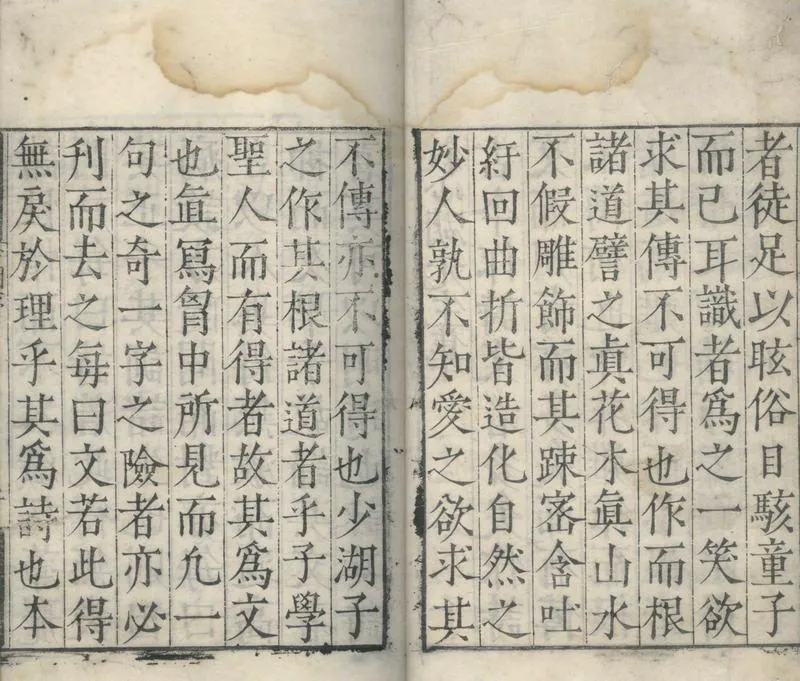 者徒足以眩俗目駭童子
而已耳識者爲之一笑欲
求其傳不可得也作而根
諸道譬之眞花木眞山水
不假雕飾而其踈宻含吐
紆回曲折皆造化自然之
妙人孰不知愛之欲求其
不傳亦不可得也少湖子
之作其根諸道者乎子學
聖人而有得者故其爲文
也直冩胷中所見而凢一
句之奇一字之險者亦必
刋而去之每曰文若此得
無戾於理乎其爲詩也本